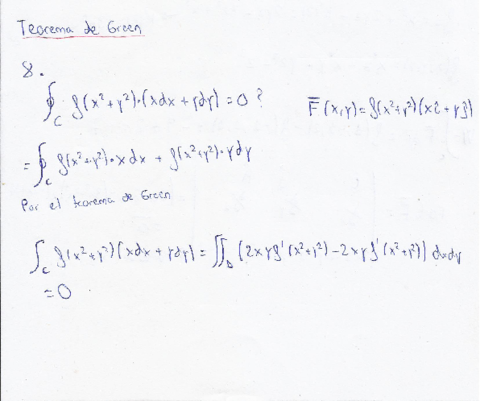 Teorema de Green
8.
∮_C f(x²+y²)·(xdx + ydy) = 0 ? F̄(x,y) = f(x²+y²)(xî + yĵ)
= ∮_C f(x²+y²)·x dx + f(x²+y²)·y dy
Por el teorema de Green
∫_C f(x²+y²)(xdx + ydy) = ∬_D (2xy f'(x²+y²) - 2xy f'(x²+y²)) dxdy
= 0